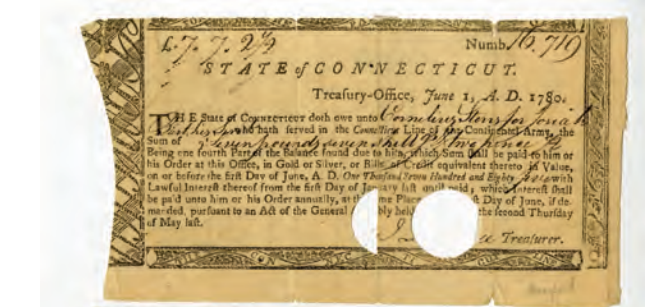 £. 7. 7. 2½ Numb. 16.719
STATE of CONNECTICUT.
Treasury-Office, June 1, A. D. 1780.
THE State of CONNECTICUT doth owe unto Cornelius for Josiah
who hath served in the Connecticut Line of the Continental Army, the
Sum of Seven pounds seven shill
Being one fourth Part of the Balance found due to him, which Sum shall be paid to him or
his Order at this Office, in Gold or Silver, or Bills of Credit equivalent thereto in Value,
on or before the first Day of June, A. D. One Thousand Seven Hundred and Eighty five with
Lawful Interest thereof from the first Day of January last until paid; which Interest shall
be paid unto him or his Order annually, at me Place Day of June, if de-
manded, pursuant to an Act of the General bly held the second Thursday
of May last.
Treasurer.